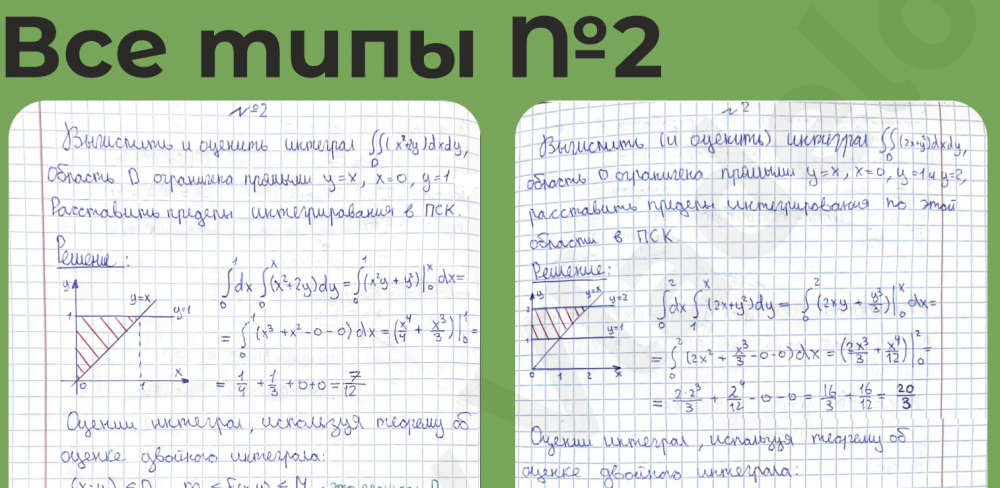 Все типы №2
№2
Вычислить и оценить интеграл ∬_D (x²+2y)dxdy,
область D ограничена прямыми y=x, x=0, y=1
Расставить пределы интегрирования в ПСК.
Решение:
∫₀¹dx ∫₀ˣ(x²+2y)dy = ∫₀¹(x²y+y²)|₀ˣ dx=
= ∫₀¹ (x³+x²-0-0)dx = (x⁴/4 + x³/3)|₀¹ =
= 1/4 + 1/3 + 0+0 = 7/12
y
y=x
y=1
1
0
1
x
Оценим интеграл, используя теорему об
оценке двойного интеграла:
№2
Вычислить (и оценить) интеграл ∬_D (2x+y²)dxdy,
область D ограничена прямыми y=x, x=0, y=1 и y=2,
расставить пределы интегрирования по этой
области в ПСК.
Решение:
∫₀²dx ∫₁ˣ (2x+y²)dy = ∫₀² (2xy + y³/3)|₀ˣ dx=
= ∫₀² (2x² + x³/3 -0-0)dx = (2x³/3 + x⁴/12)|₀² =
= 2·2³/3 + 2⁴/12 -0-0 = 16/3 + 16/12 = 20/3
y
y=x
2
y=2
1
y=1
0
1
2
x
Оценим интеграл, используя теорему об
оценке двойного интеграла: